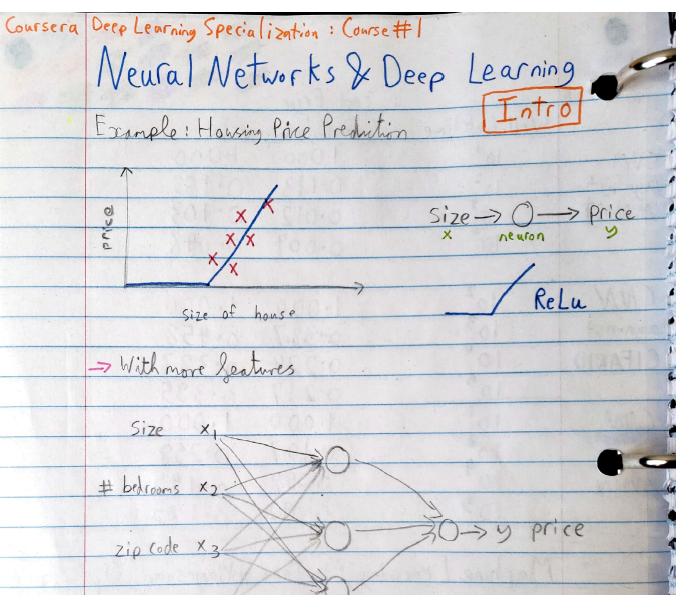 Coursera Deep Learning Specialization : Course #1
Neural Networks & Deep Learning
Intro
Example : Housing Price Prediction
price
size of house
size → O → price
x neuron y
ReLu
→ With more features
size x1
# bedrooms x2
zip code x3
→ y price